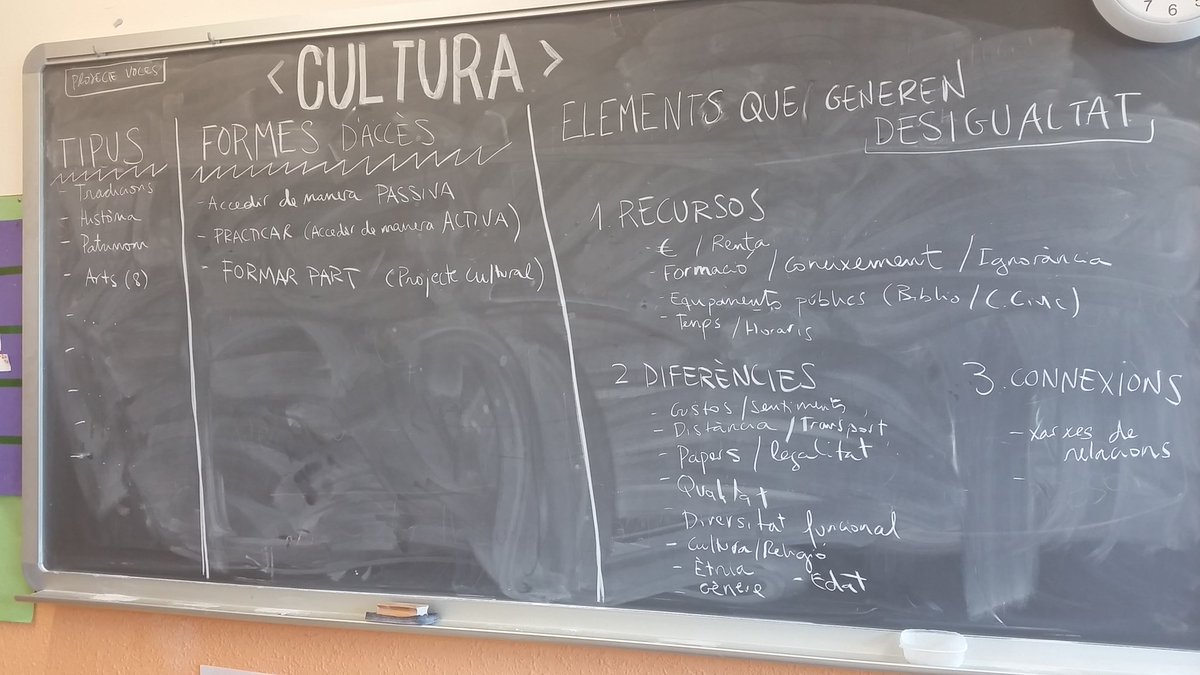 PROJECTE VOCES
< CULTURA >
TIPUS
- Tradicions
- Història
- Patrimoni
- Arts (8)
FORMES D'ACCÈS
- Accedir de manera PASSIVA
- PRACTICAR (Accedir de manera ACTIVA)
- FORMAR PART (Projecte Cultural)
ELEMENTS QUE GENEREN
DESIGUALTAT
1. RECURSOS
- € / Renta
- Formació / Coneixement / Ignorància
- Equipaments públics (Biblio / C. Cívic)
- Temps / Horaris
2 DIFERÈNCIES
- Gustos / Sentiments
- Distància / Transport
- Papers / legalitat
- Qualitat
- Diversitat funcional
- Cultura / Religió
- Ètnia
- Gènere
- Edat
3. CONNEXIONS
- Xarxes de
relacions
-
7 6 5